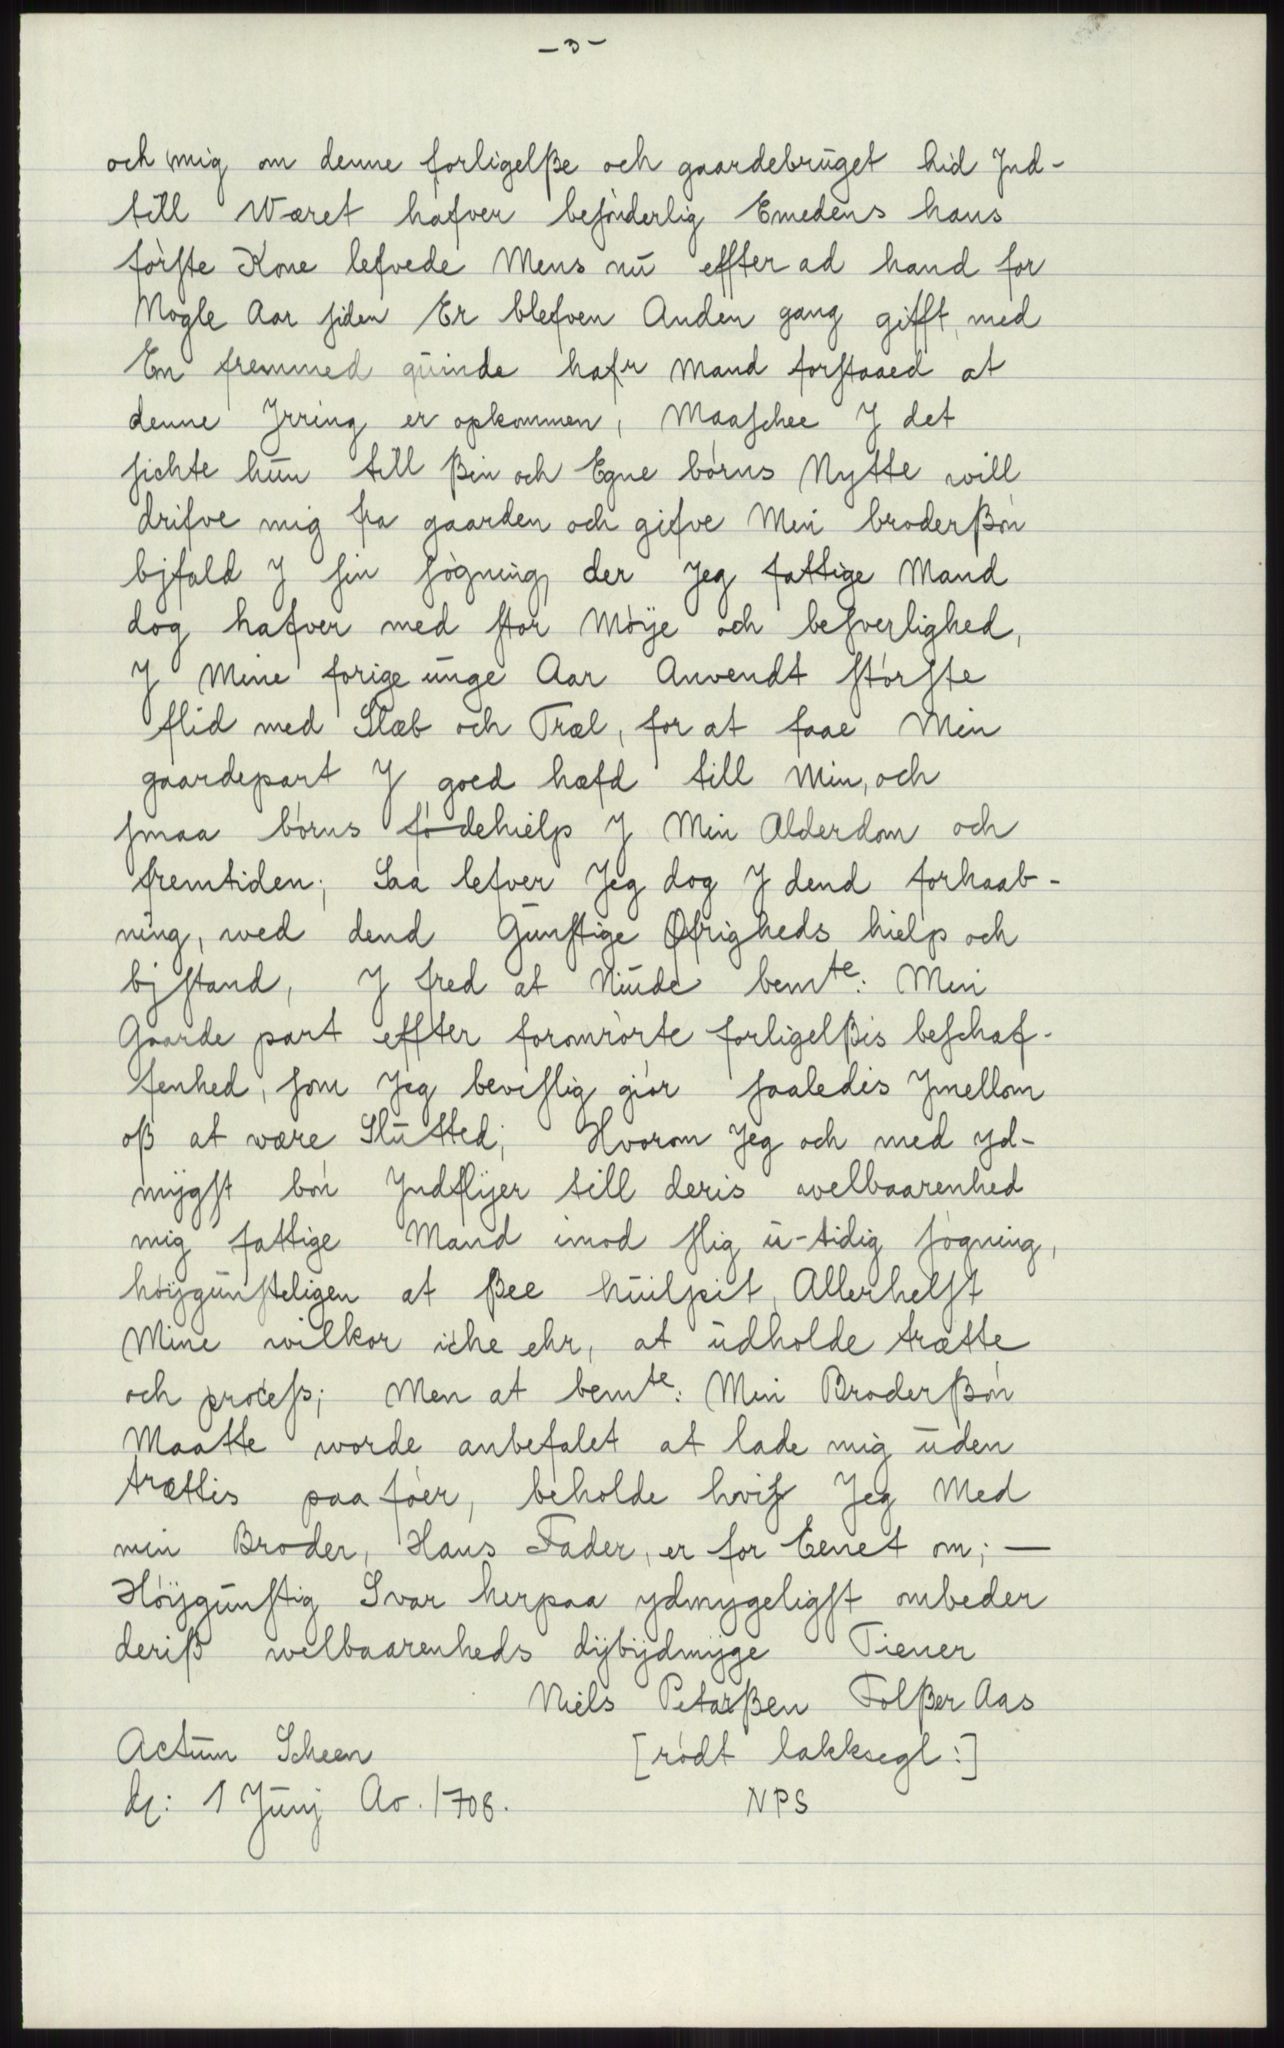 - 3 -
och mig om denne forligelße och gaardebrüget hid Jnd-
till Været hafver besónderlig Emedens hans
fórste Kone lefvede Mens nü effter ad hand for
Nogle Aar siden Er blefven Anden gang gifft, med
En fremmed qüinde hafr mand forstaaed at
denne Jrring er opkommen, Maaschee J det
sichte hün till ßin och Egne bórns Nytte will
drifve mig fra gaarden och gifve Min broderßón
bjfald J sin sógning, der Jeg fattige Mand
dog hafver med stor Móÿe och besverlighed,
J Mine forige ünge Aar Anvendt stórste
flid med Slæb och Træl, for at faae Min
gaardepart J goed hæfd till Min, och
smaa bórns fódehielp J Min Alderdom och
fremtiden; Saa lefver Jeg dog J dend forhaab-
ning, wed dend Günstige Øfrigheds hielp och
bjstand, J fred at Niüde bemte: Min
Gaarde part effter foromrórte forligelßis beschaf-
fenhed, som Jeg bevislig giór saaledis Jmellom
oß at være Slütted; Hvorom Jeg och med yd-
mÿgst bón Jndflÿer till deris welbaarenhed
mig fattige Mand imod slig ü-tidig sógning,
hóÿgünsteligen at ßee hüilpit, Allerhelst
Mine wilkor iche ehr, at üdholde trætte
och process; Men at bemte: Min Broderßón
Maatte worde anbefalet at lade mig üden
trættis paa fóer, beholde hvis Jeg Med
min Broder, Hans Fader, er for Eenet om; —
Hóÿgünstig Svar herpaa ydmygeligst ombeder
deriß welbaarenheds dÿbÿdmÿge Tiener
Niels Petarßen Folßer Aas
Actüm Scheen [ródt lakksegl:]
d: 1 Jünj Ao. 1708. NPS